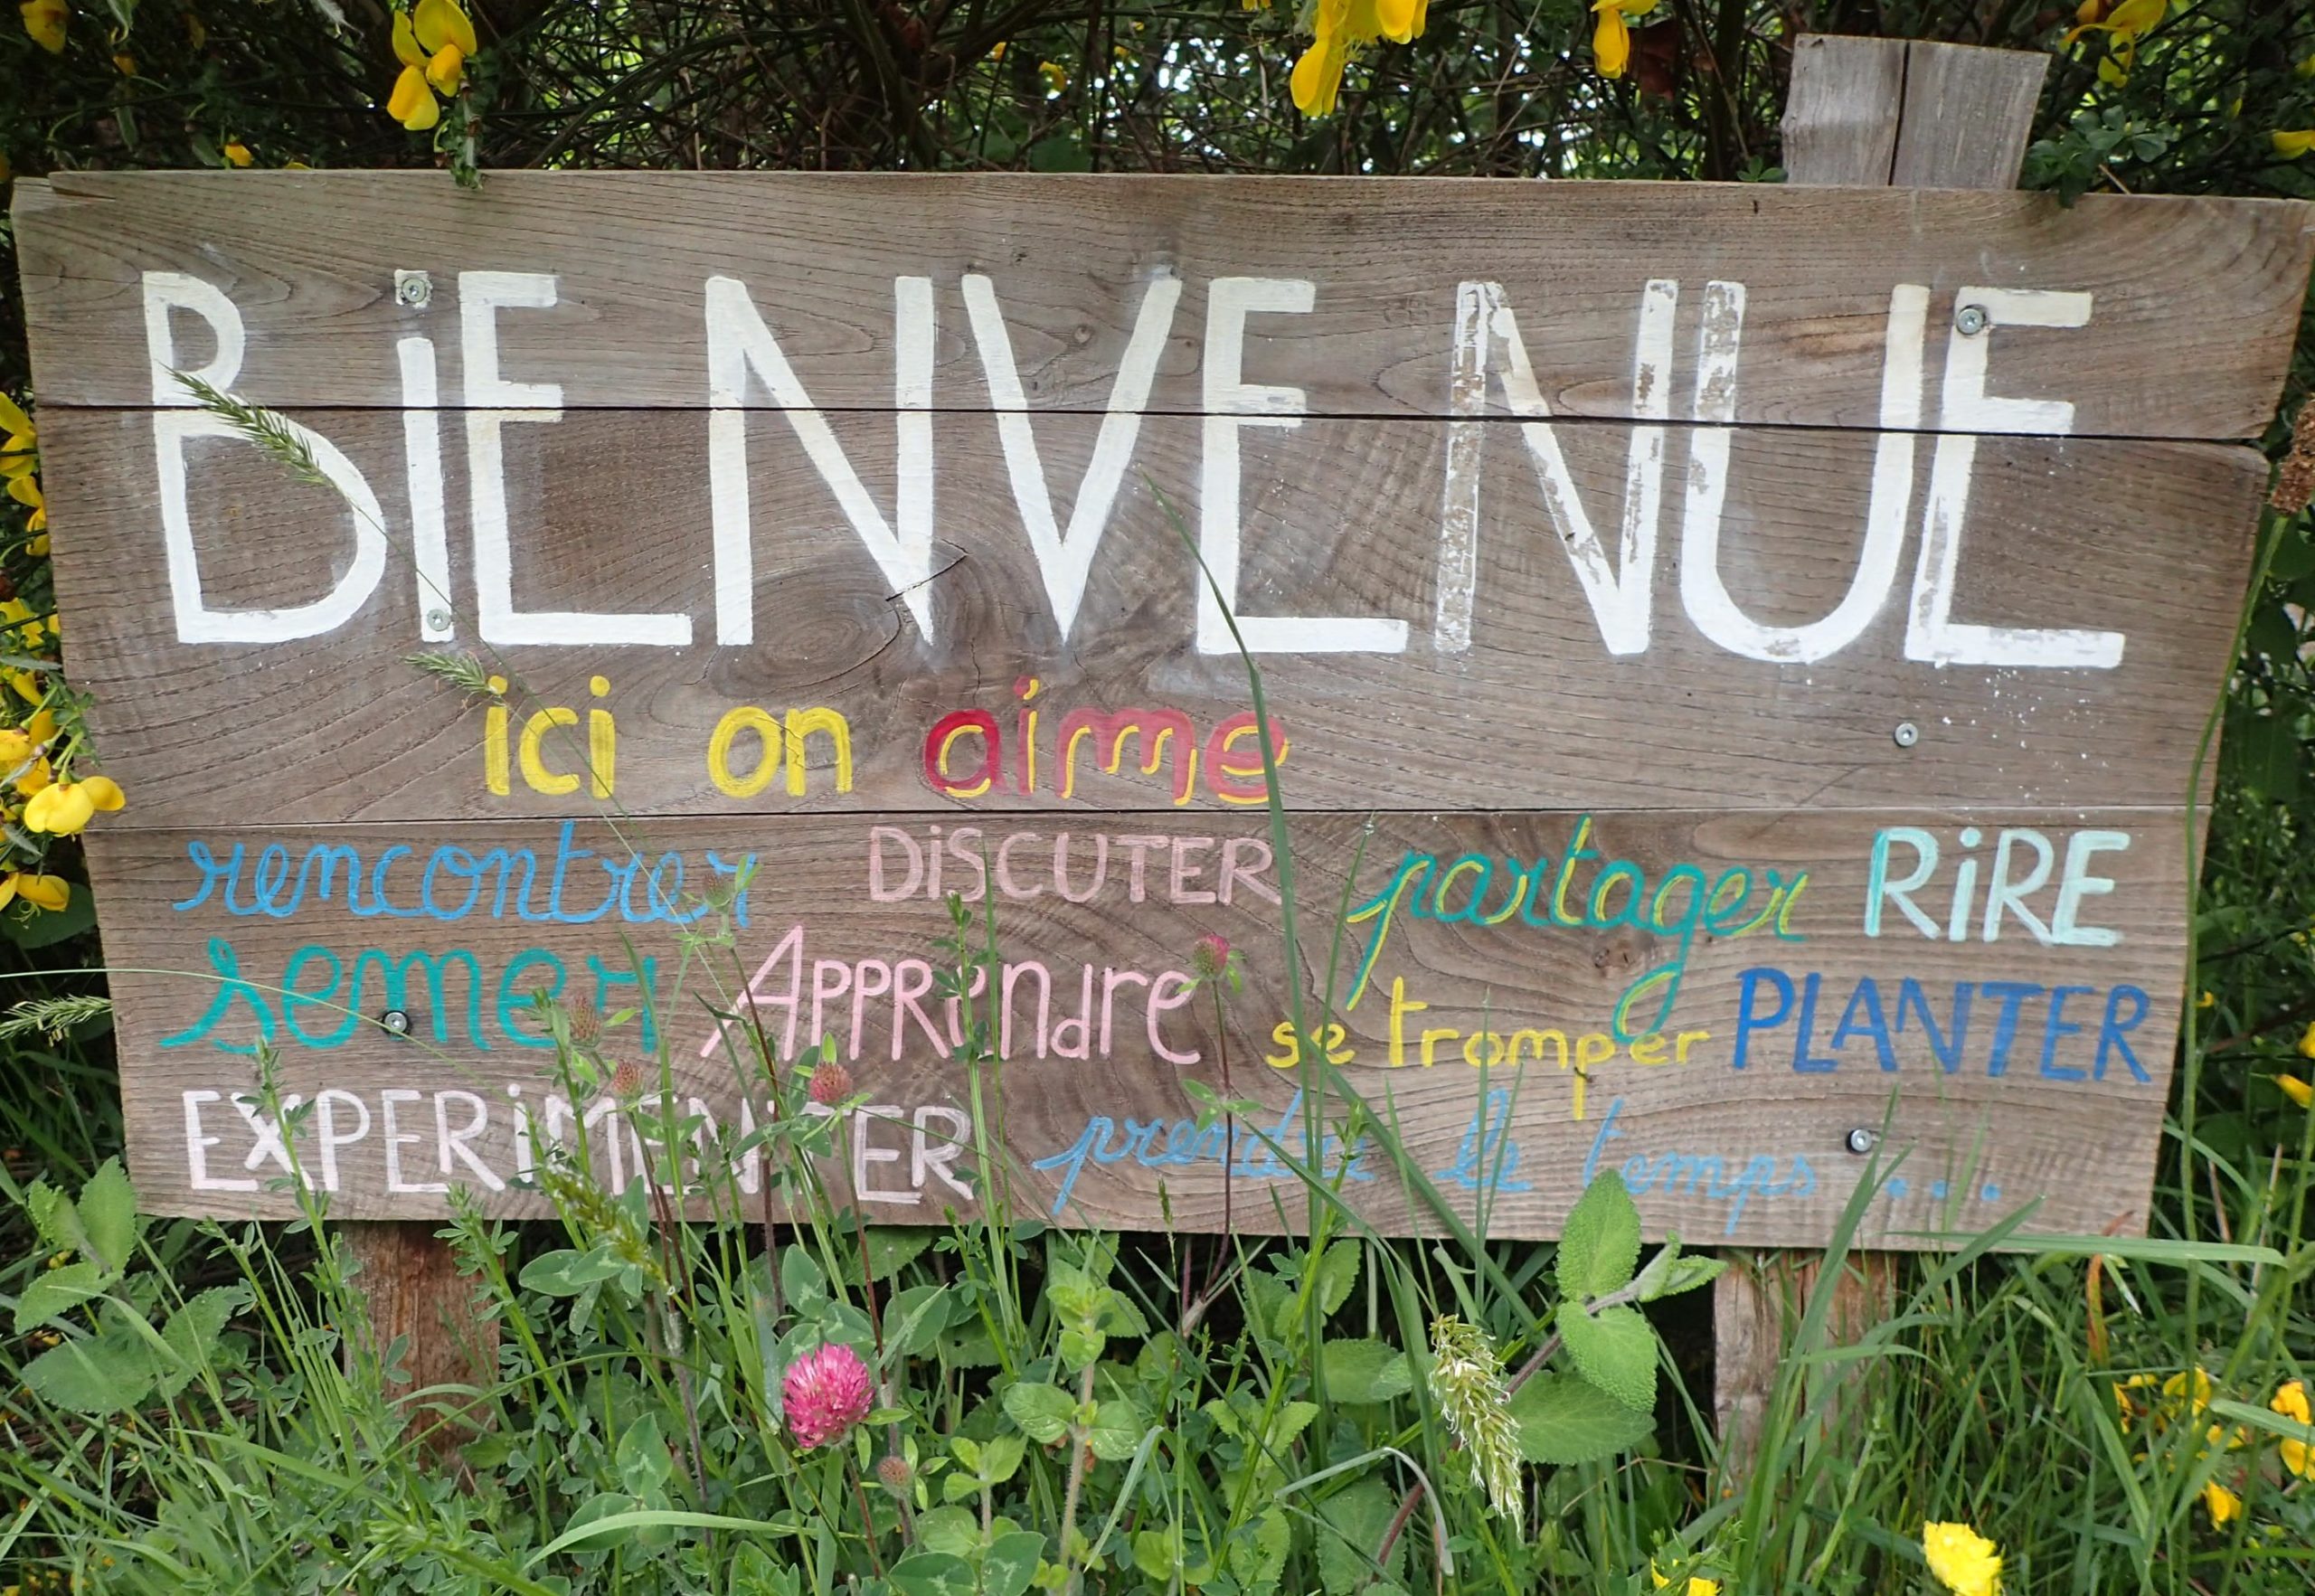 BiENVENUE
ici on aime
rencontrer DiSCUTER partager RiRE
semer APPRendre se tromper PLANTER
EXPERiMENTER prendre le temps ...